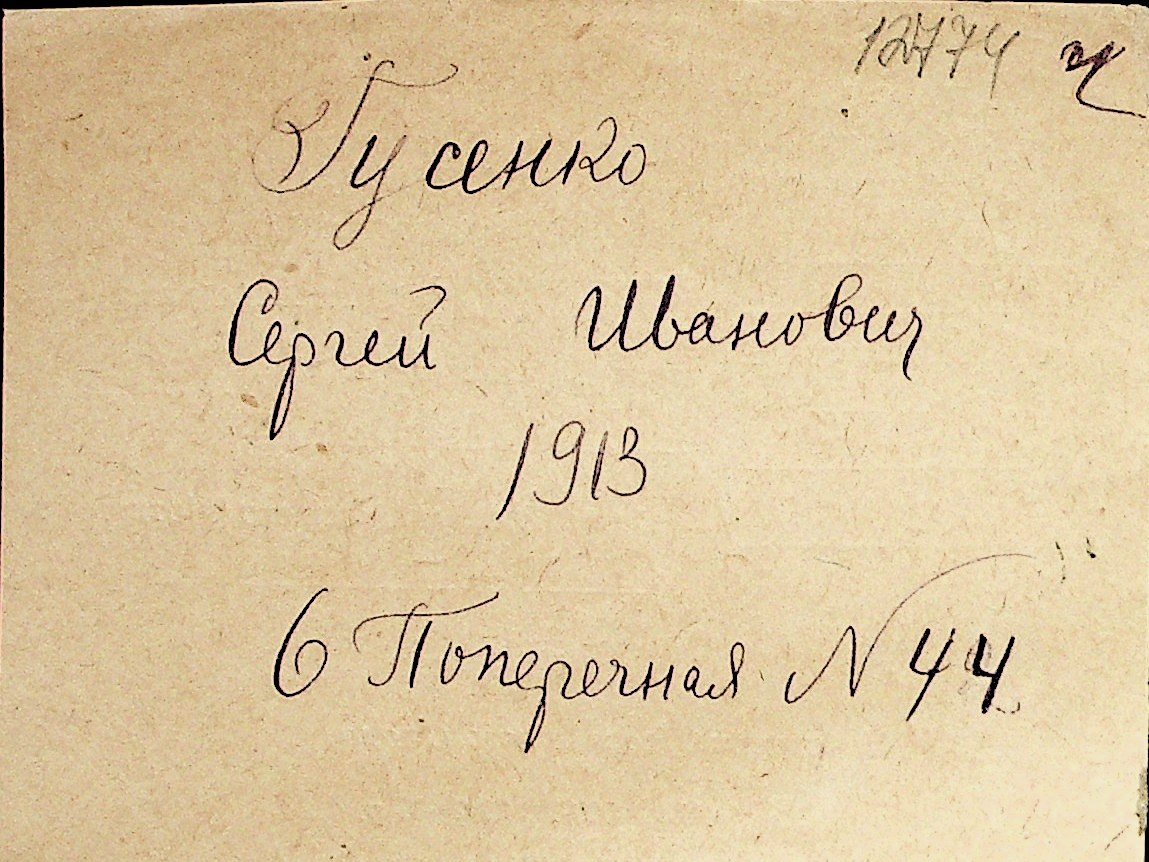 12774 ч
Гусенко
Сергей Иванович
1913
6 Поперечная N 44